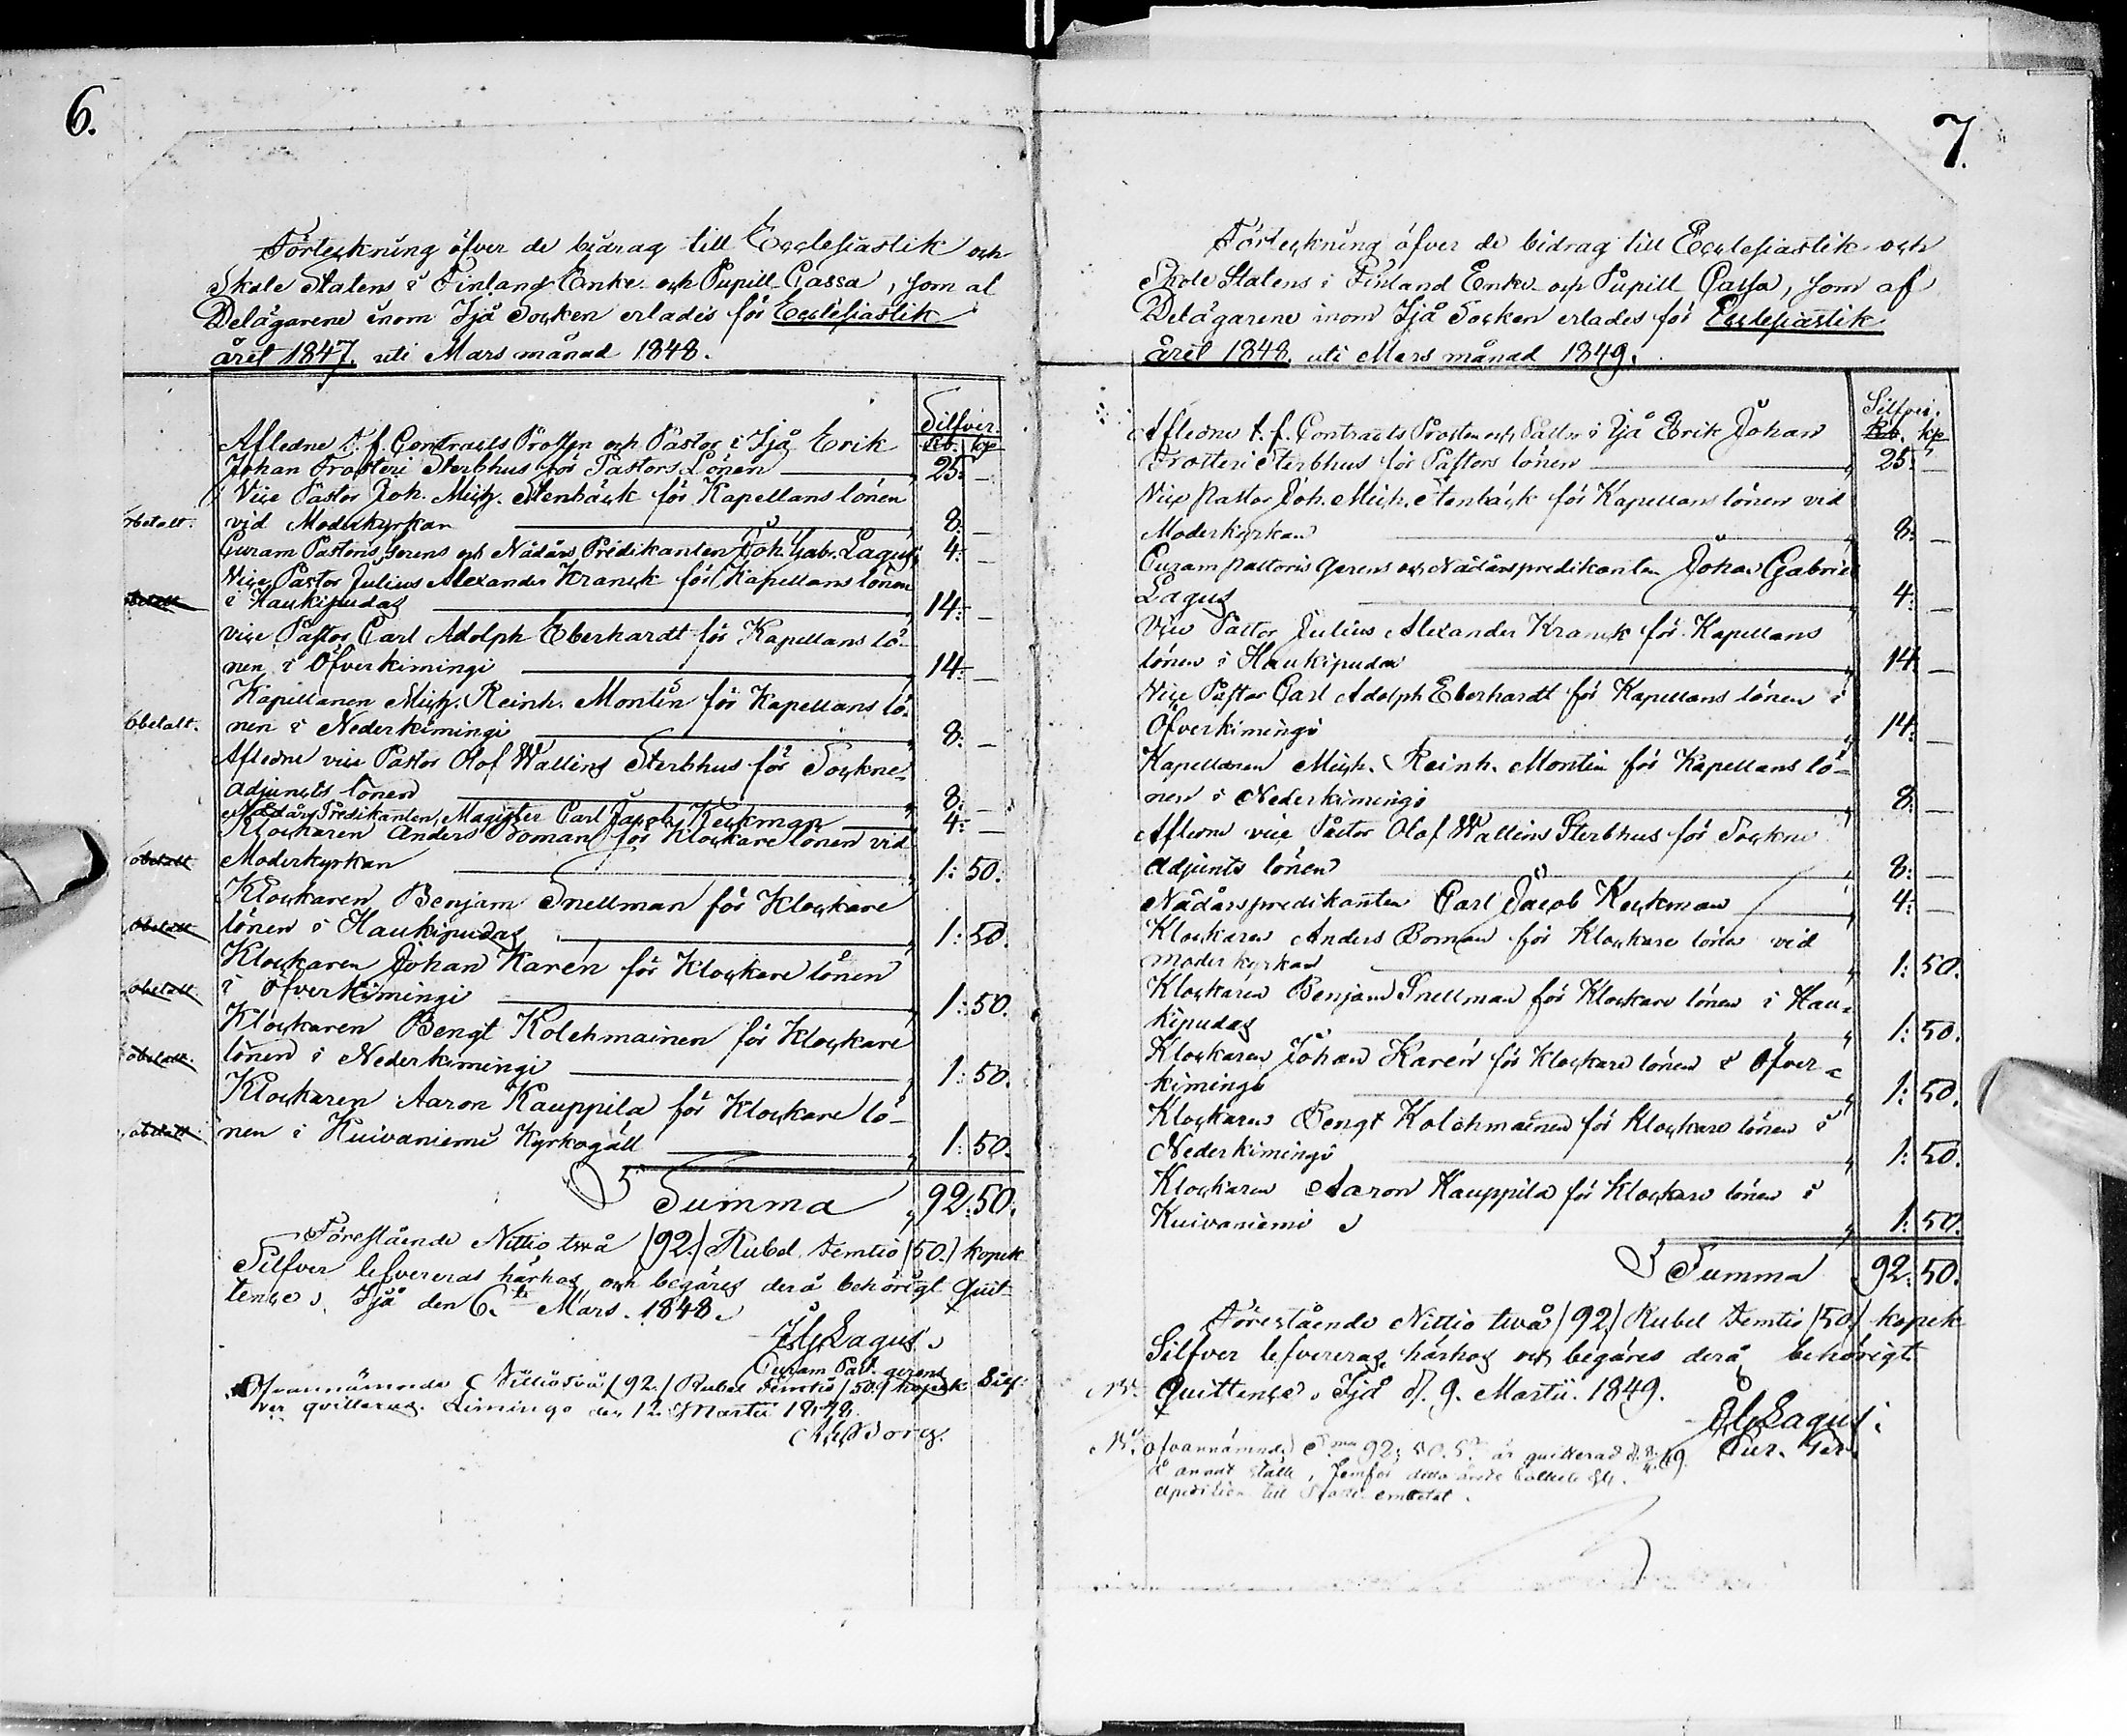 6.
Förteckning öfver de bidrag till Ecclesiastik och
Skole Statens i Finland Enke- och Pupill-Cassa, som af
Delägarene inom Ijå Socken erlades för Ecclesiastik
året 1847. uti Mars månad 1848.
Silfver.
Rb. kp
Afledne t. f. Contracts Prosten och Pastor i Ijå Erik
Johan Frosteri Sterbhus för Pastors Lönen 25: —
Vice Pastor Joh. Mich. Stenbäck för Kapellans lönen
obetalt. vid Moderkyrkan 8: —
Curam Pastoris gerens och Nådårs Predikanten Joh. Gab. Lagus 4: —
Vice Pastor Julius Alexander Kranck för Kapellans lönen
obetalt i Haukipudas 14: —
Vice Pastor Carl Adolph Eberhardt för Kapellans lö-
nen i Öfverkimingi 14: —
Kapellanen Mich. Reinh. Montin för Kapellans lö-
obetalt. nen i Nederkimingi 8: —
Afledne vice Pastor Olof Wallins Sterbhus för Sockne-
adjuncts lönen 8: —
Nådårs Predikanten, Magister Carl Jacob Keckman 4: —
Klockaren Anders Boman för Klockare lönen vid
obetalt Moderkyrkan 1: 50.
Klockaren Benjam Snellman för Klockare
obetalt lönen i Haukipudas 1: 50.
Klockaren Johan Karén för Klockare lönen
obetalt i Öfverkimingi 1: 50.
Klockaren Bengt Kolehmainen för Klockare
obetalt. lönen i Nederkimingi 1: 50.
Klockaren Aaron Kauppila för Klockare lö-
obetalt nen i Kuivaniemi Kyrkogäll 1: 50.
Summa 92: 50.
Förestående Nittio två /92./ Rubel femtio /50./ kopek
Silfver lefvereras härhos och begäres derå behörigt quit-
tence. Ijå den 6.te Mars. 1848.
J. G. Lagus.
Curam Past. gerens
Ofvannämnde Nittiotvå /92./ Rubel Femtio /50./ kopek Silf-
ver qvitteras. Limingo den 12 Martii 1848.
Borg.
7.
Förteckning öfver de bidrag till Ecclesiastik och
Skole Statens i Finland Enke- och Pupill Cassa, som af
Delägarene inom Ijå Socken erlades för Ecclesiastik
året 1848. uti Mars månad 1849.
Silfver.
Rb. kp
Afledne t. f. Contracts Prosten och Pastor i Ijå Erik Johan
Frosteri Sterbhus för Pastors lönen 25: —
Vice Pastor Joh. Mich. Stenbäck för Kapellans lönen vid
Moderkyrkan 8: —
Curam pastoris gerens och Nådårspredikanten Johan Gabriel
Lagus 4: —
Vice Pastor Julius Alexander Kranck för Kapellans
lönen i Haukipudas 14: —
Vice Pastor Carl Adolph Eberhardt för Kapellans lönen i
Öfverkimingi 14: —
Kapellanen Mich. Reinh. Montin för Kapellans lö-
nen i Nederkimingi 8: —
Afledne vice Pastor Olof Wallins Sterbhus för Sockne
adjunts lönen 8: —
Nådårspredikanten Carl Jacob Keckman 4: —
Klockaren Anders Boman för Klockare lönen vid
moderkyrkan 1: 50.
Klockaren Benjam Snellman för Klockare lönen i Hau-
kipudas 1: 50.
Klockaren Johan Karén för Klockare lönen i Öfver-
kimingi 1: 50.
Klockaren Bengt Kolehmainen för Klockare lönen i
Nederkimingi 1: 50.
Klockaren Aaron Kauppila för Klockare lönen i
Kuivaniemi 1: 50.
Summa 92: 50.
Förestående Nittio två /92./ Rubel femtio /50./ kopek
Silfver lefvereras härhos och begäres derå behörigt
quittence. Ijå d. 9. Martii. 1849.
J. G. Lagus.
Cur. Ger.
ofvannämnde 92: 50. är quitterad
å annat ställe, Jemför detta
expedition till embetet.